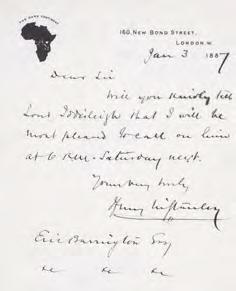 THE DARK CONTINENT
160, NEW BOND STREET,
LONDON. W.
Jan 3 1887
Dear Sir
Will you kindly tell
Lord Iddesleigh that I will be
most pleased to call on him
at 6 P.M. Saturday next.
Yours very truly
Henry M Stanley
Eric Barrington Esq